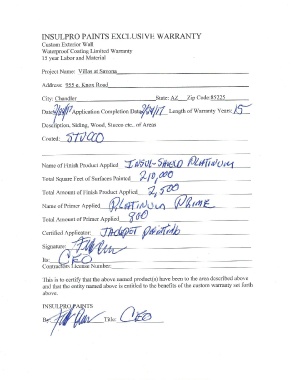 INSULPRO PAINTS EXCLUSIVE WARRANTY
Custom Exterior Wall
Waterproof Coating Limited Warranty
15 year Labor and Material
Project Name: Villas at Savona
Address: 955 e. Knox Road
City: Chandler State: AZ Zip Code: 85225
Date: Application Completion Date: Length of Warranty Years: 15
Description, Siding, Wood, Stucco etc., of Areas
Coated: STUCCO
Name of Finish Product Applied INSUL-SHIELD PLATINUM
Total Square Feet of Surfaces Painted 210,000
Total Amount of Finish Product Applied 2,500
Name of Primer Applied PLATINUM PRIME
Total Amount of Primer Applied 800
Certified Applicator: PAINTING
Signature:
Its: CEO
Contractors License Number:
This is to certify that the above named product(s) have been to the area described above
and that the entity named above is entitled to the benefits of the custom warranty set forth
above.
INSULPRO PAINTS
By: Title: CEO